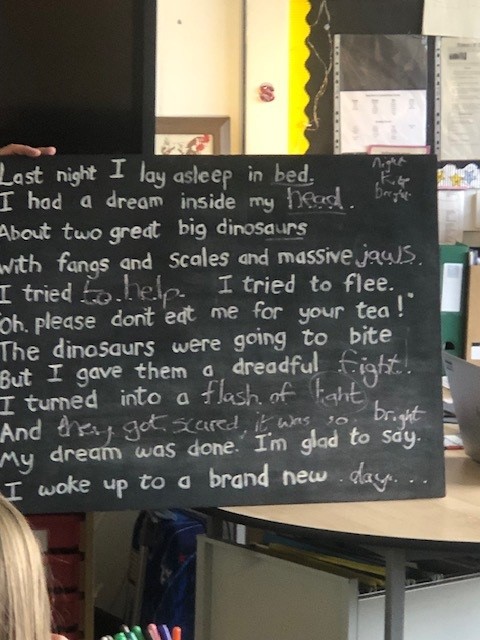 Last night I lay asleep in bed.
I had a dream inside my head.
About two great big dinosaurs
with fangs and scales and massive jaws.
I tried to help. I tried to flee.
"Oh, please dont eat me for your tea!"
The dinosaurs were going to bite
But I gave them a dreadful fight!
I turned into a flash of light
And they got scared, it was so bright
My dream was done. I'm glad to say.
I woke up to a brand new day...
night
bright
S